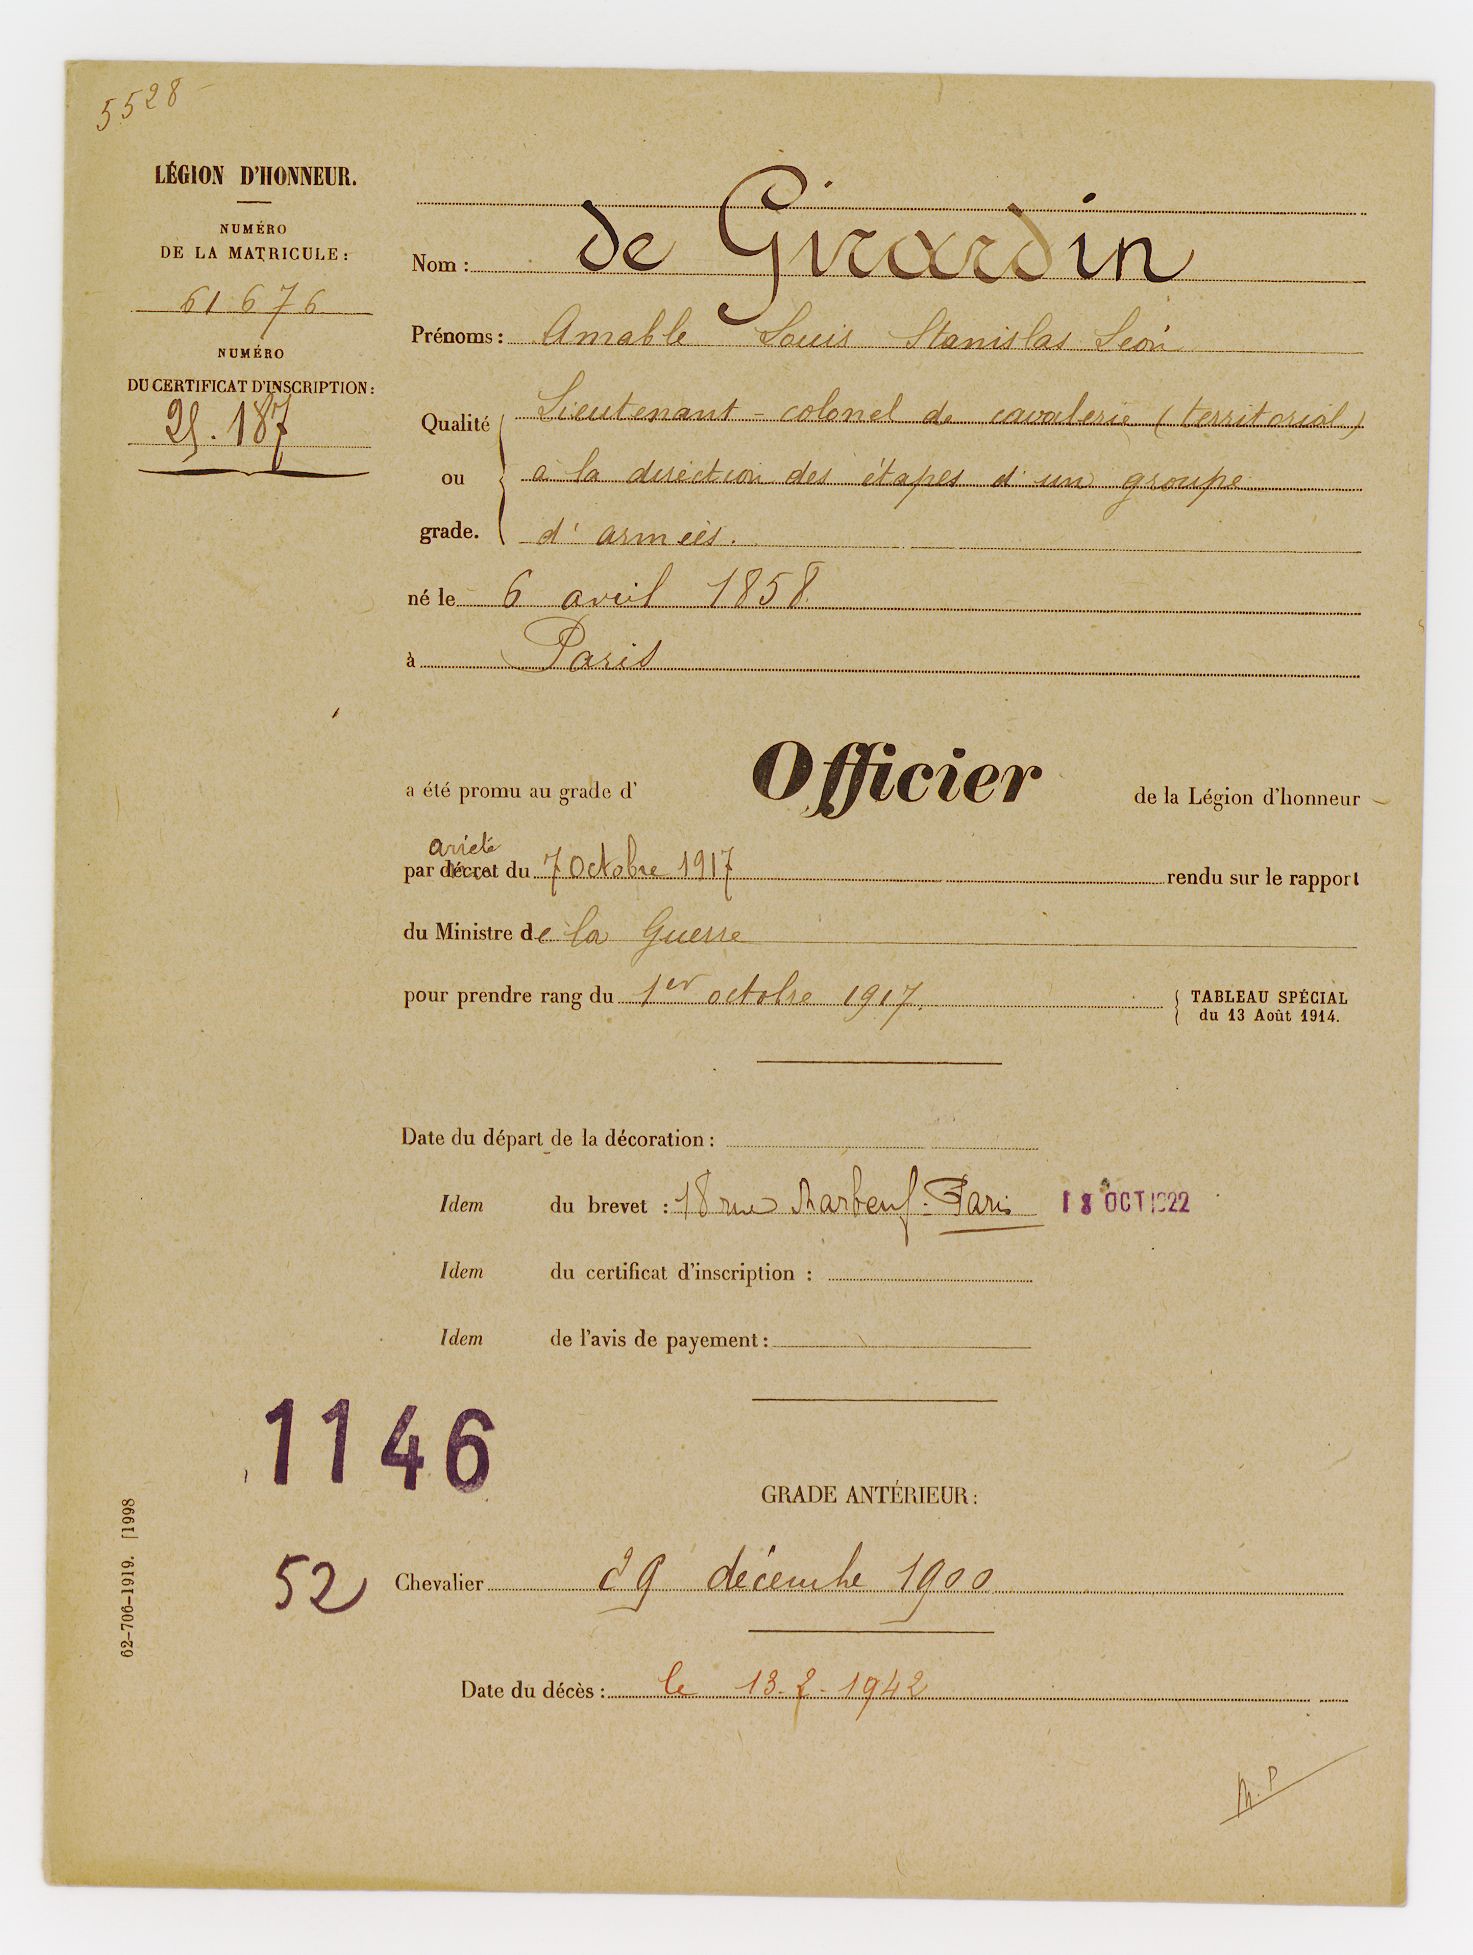 5528
LÉGION D'HONNEUR.
NUMÉRO
DE LA MATRICULE :
61676
NUMÉRO
DU CERTIFICAT D'INSCRIPTION :
25.187
Nom : de Girardin
Prénoms : Amable Louis Stanislas Léon
Qualité ou grade. Lieutenant-colonel de cavalerie (territorial)
à la direction des étapes d'un groupe
d'armées.
né le 6 avril 1858.
à Paris
a été promu au grade d' Officier de la Légion d'honneur
arrêté
par décret du 7 Octobre 1917 rendu sur le rapport
du Ministre de la Guerre
pour prendre rang du 1er octobre 1917. { TABLEAU SPÉCIAL
du 13 Août 1914.
Date du départ de la décoration :
Idem du brevet : 18 rue Marbeuf. Paris 18 OCT 1922
Idem du certificat d'inscription :
Idem de l'avis de payement :
1146
GRADE ANTÉRIEUR :
52
Chevalier 29 décembre 1900
Date du décès : le 13-2-1942
M.P
62-706-1919. [1998